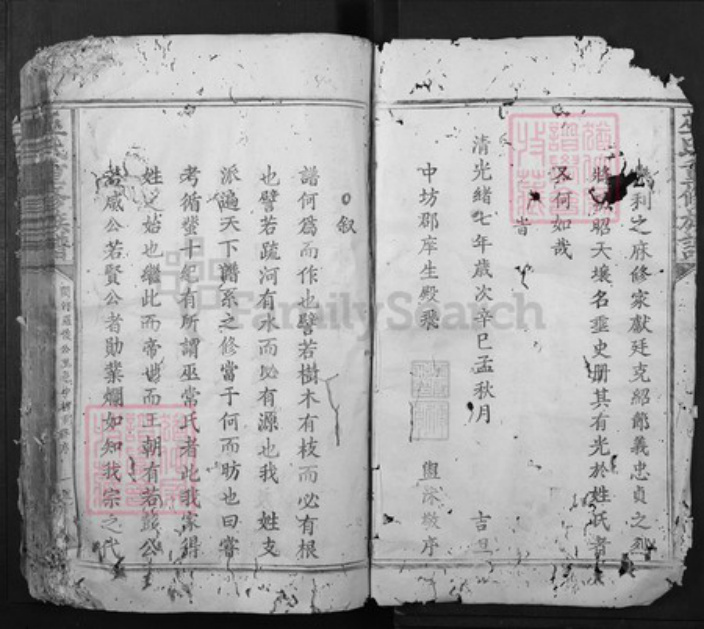 利之麻修家獻廷克紹節義忠貞之烈
昭天壤名垂史册其有光於姓氏者
何如哉
旹
清光緒七年歲次辛巳孟秋月 吉旦
中坊郡庠生殿飛 敬序
叙
譜何爲而作也譬若樹木有枝而必有根
也譬若疏河有水而必有源也我 姓支
派遍天下譜系之修當于何而昉也曰嘗
考循蜚十紀有所謂巫常氏者此我家得
姓之始也繼此而帝世而王朝有若 公
若咸公若賢公者勛業爛如知我宗之代
巫氏重修族譜
FamilySearch